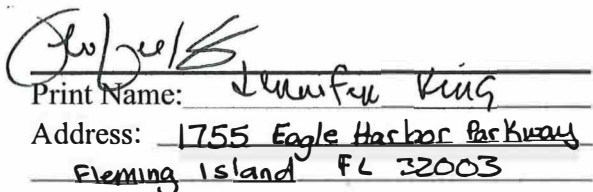 Print Name: Jennifer King
Address: 1755 Eagle Harbor Parkway
Fleming Island FL 32003